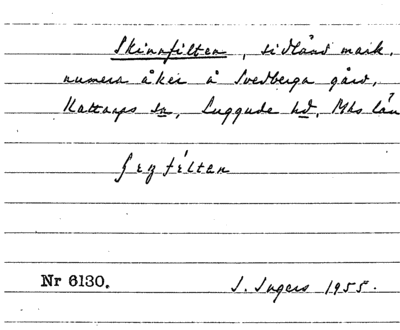 Skinnfilten, sidländ mark,
numera åker å Svedberga gård,
Kattarps sn, Luggude hd, Mhs län
Nr 6130. I. Ingers 1955.